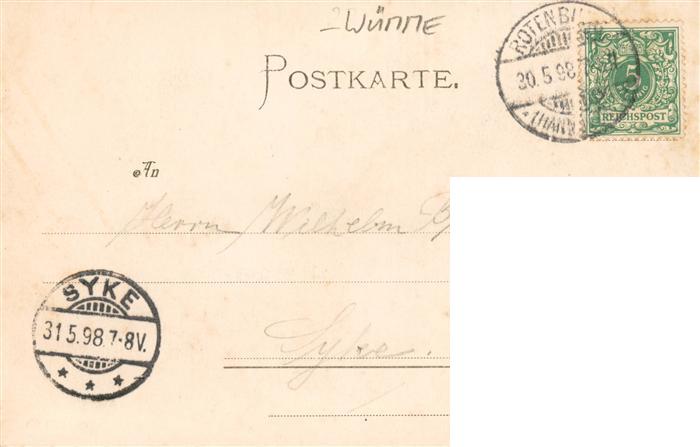 WÜMME
POSTKARTE.
ROTENBU
30.5.98
(HANN
5
REICHSPOST
An
Herrn Wilhelm B
SYKE
31 5.98.7-8V.
Syke.